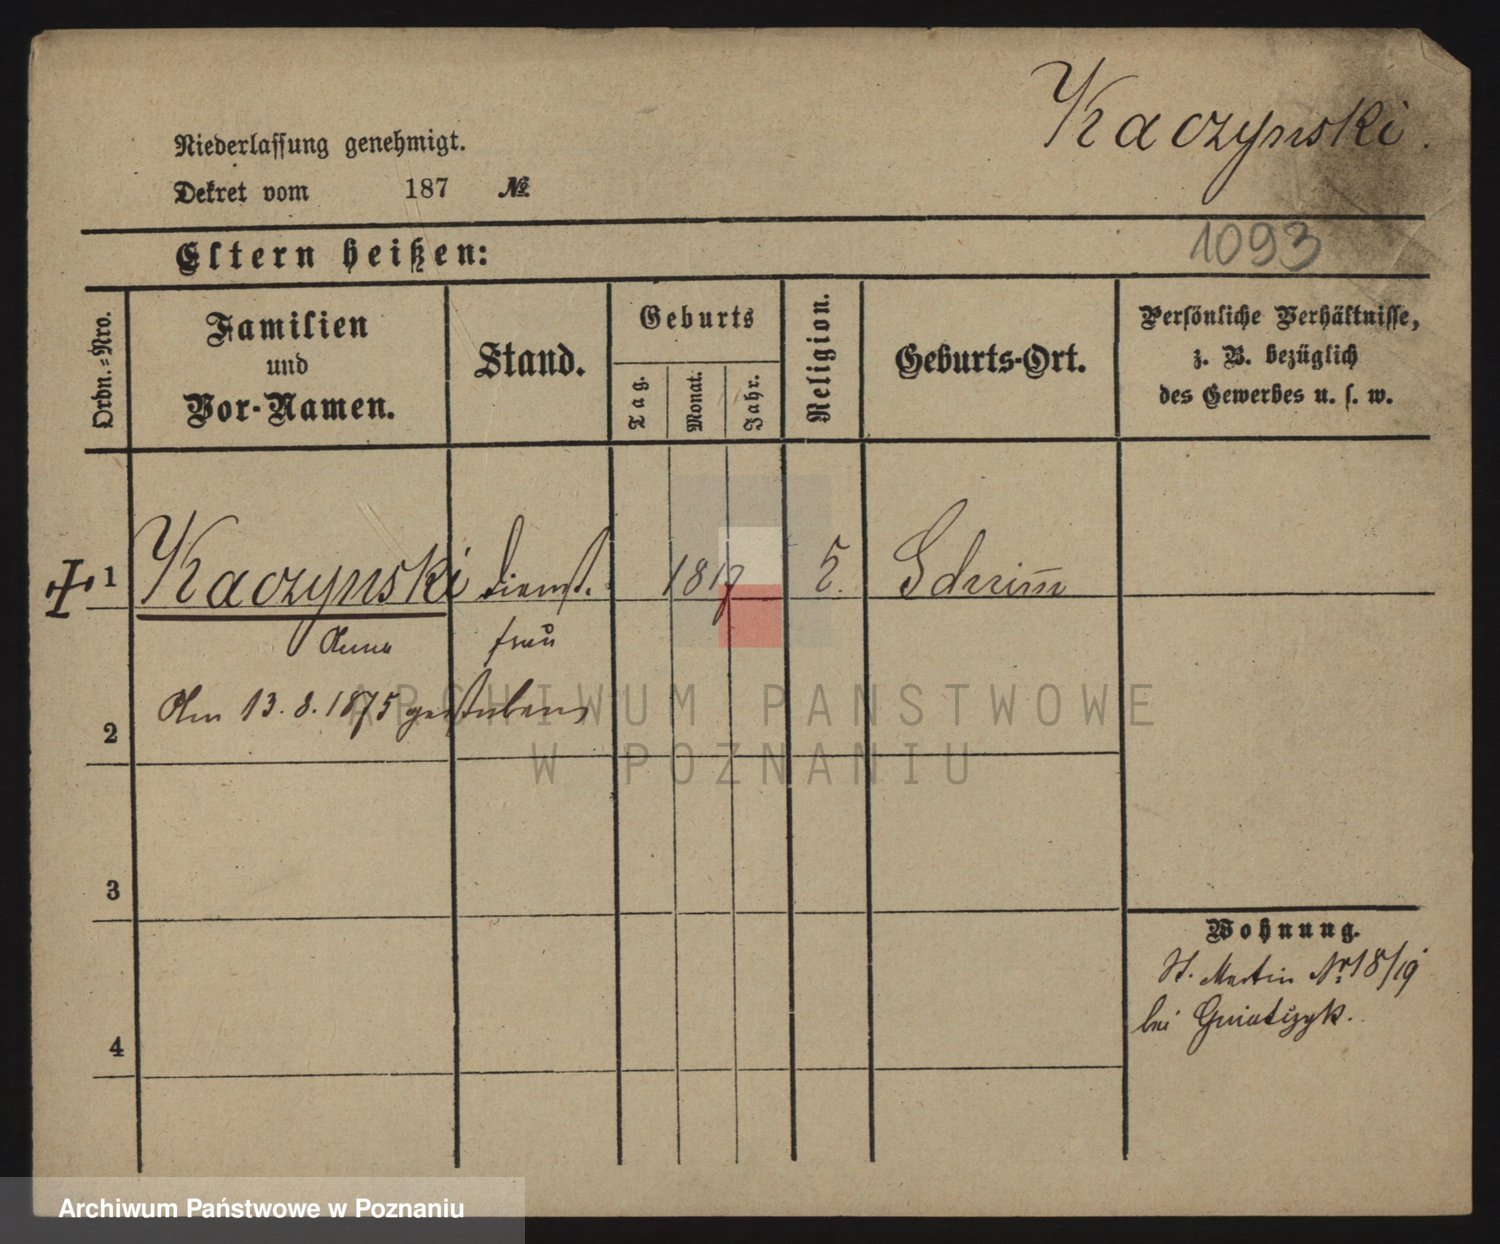 Kaczynski.
Niederlassung genehmigt.
Dekret vom 187 №
1093
Eltern heißen:
Ordn.=Nro.
Familien und Vor-Namen.
Stand.
Geburts
Tag.
Monat.
Jahr.
Religion.
Geburts-Ort.
Persönliche Verhältnisse,
z. B. bezüglich
des Gewerbes u. s. w.
1 Kaczynski Dienst. 1817 Schrim̅
Anna frau
Am 13. 8. 1875 gestorben
2
3
4
Wohnung.
St. Martin Nr. 18/19
bei Gniatczyk.
ARCHIWUM PANSTWOWE
W POZNANIU
Archiwum Państwowe w Poznaniu